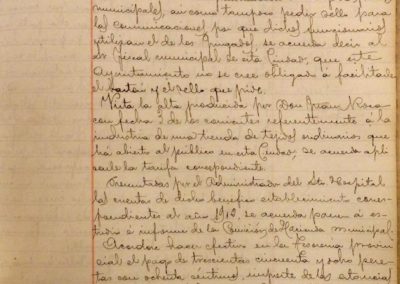 municipales, asi como tampoco poder sello para
las comunicaciones por que dichos funcionarios
utilizan el de los Juzgados, se acuerda decir al
Sr. Fiscal municipal de esta Ciudad, que este
Ayuntamiento no se cree obligado á facilitarle
el bastón y el sello que pide.
Vista la alta producida por Don
con fecha 3 de los corrientes referentemente á la
industria de una tienda de tejidos ordinarios que
ha abierto al público en esta Ciudad, se acuerda apli
carle la tarifa correspondiente.
Presentadas por el Administrador del Sto. Hospital
las cuentas de dicho benefico establecimiento corres
pondientes al año 1912, se acuerda pasen á es-
tudio é informe de la Comisión de Hacienda municipal.
Acordose hacer efectivo en la Tesoreria provin
cial el pago de trescientas cincuenta y ocho pese
tas con ochenta céntimos, importe de las estancias